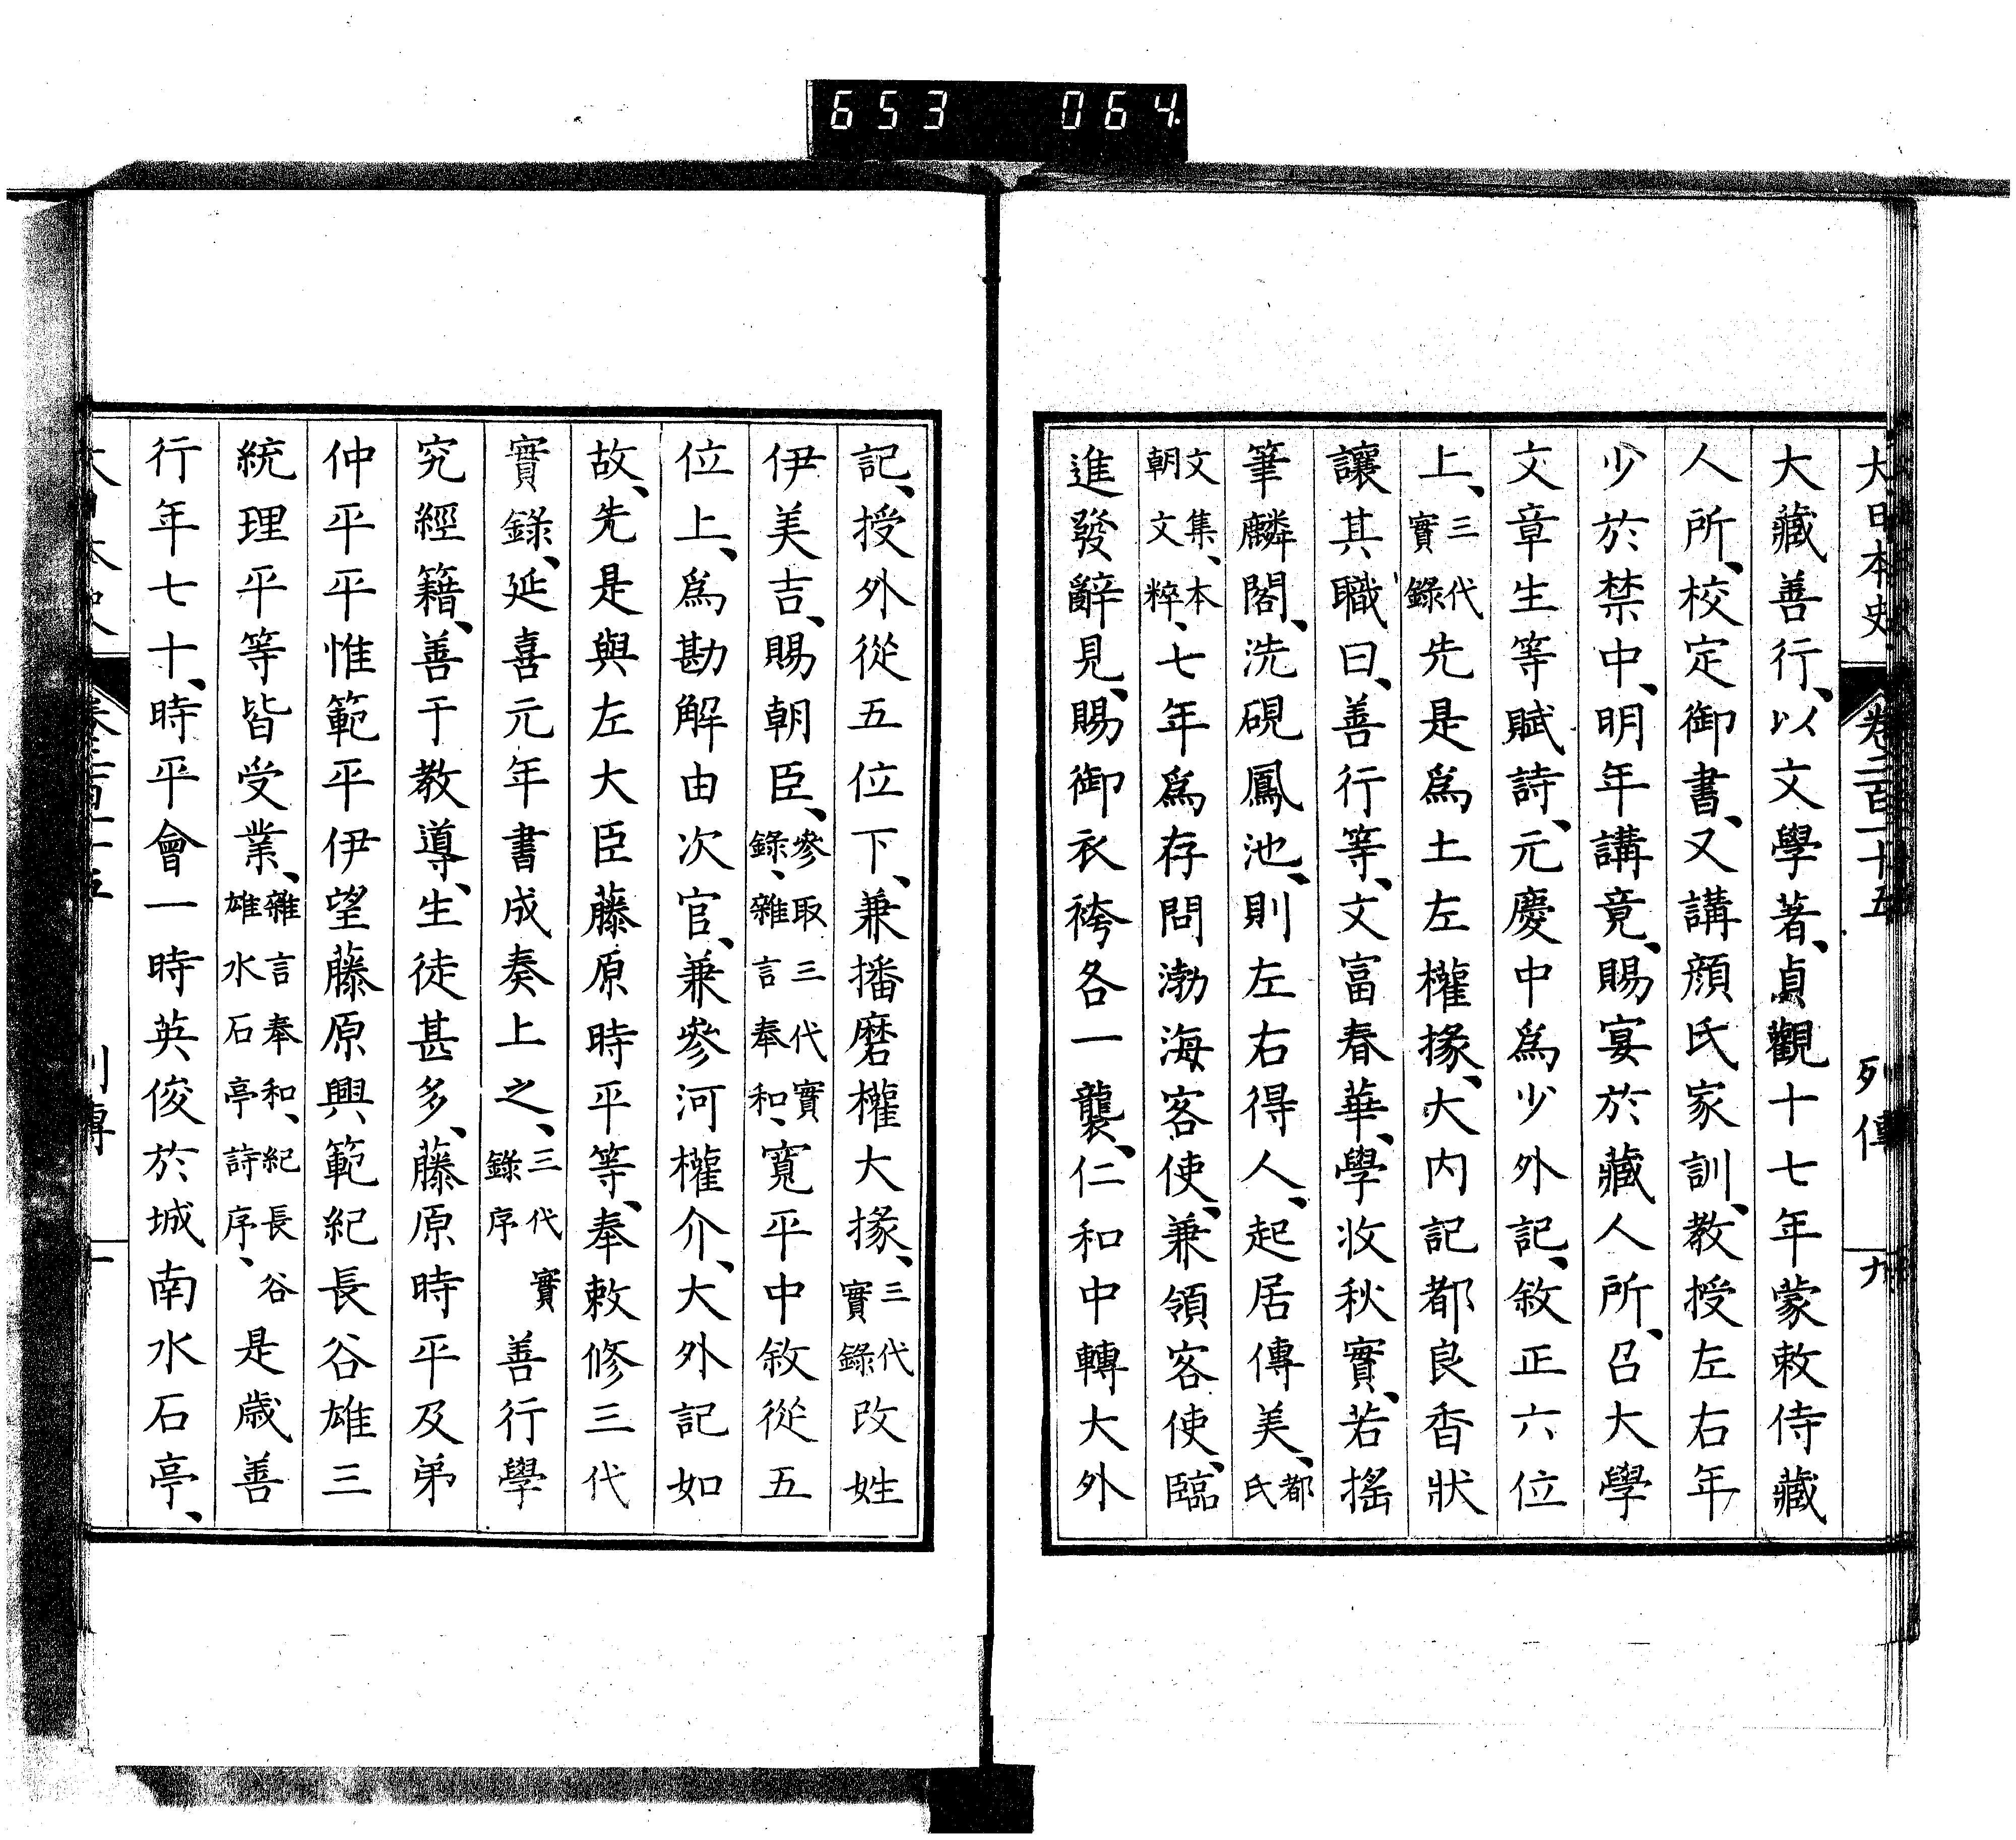 653 064
大日本史 卷二百十五 列傳 九
大藏善行、以文學著、貞觀十七年蒙敕侍藏
人所、校定御書、又講顔氏家訓、教授左右年
少於禁中、明年講竟、賜宴於藏人所、召大學
文章生等賦詩、元慶中爲少外記、敘正六位
上、三代實錄先是爲土左權掾、大内記都良香狀
讓其職曰、善行等、文富春華、學收秋實、若搖
筆麟閣、洗硯鳳池、則左右得人、起居傳美、都氏
文集、本朝文粹、七年爲存問渤海客使、兼領客使、臨
進發辭見、賜御衣袴各一襲、仁和中轉大外
記、授外從五位下、兼播磨權大掾、三代實錄改姓
伊美吉、賜朝臣、參取三代實錄、雜言奉和、寬平中敘從五
位上、爲勘解由次官、兼參河權介、大外記如
故、先是與左大臣藤原時平等、奉敕修三代
實錄、延喜元年書成奏上之、三代實錄序善行學
究經籍、善于教導、生徒甚多、藤原時平及弟
仲平平惟範平伊望藤原興範紀長谷雄三
統理平等皆受業、雜言奉和、紀長谷雄水石亭詩序、是歳善
行年七十、時平會一時英俊於城南水石亭、